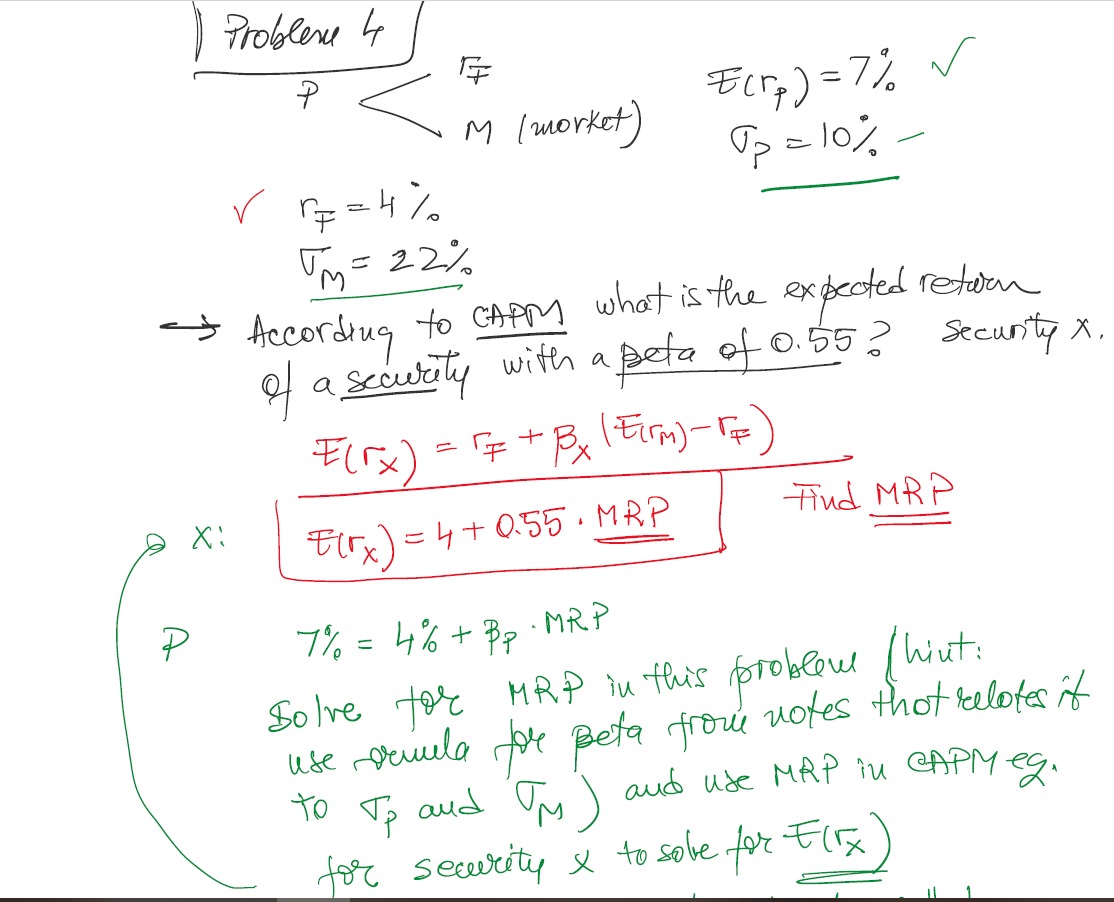 Problem 4
P
rF
M (market)
E(rp) = 7% ✓
σp = 10%
✓ rF = 4%
σM = 22%
→ According to CAPM what is the expected return
of a security with a beta of 0.55? security x.
E(rx) = rF + βx (E(rM) − rF)
Find MRP
x: E(rx) = 4 + 0.55 · MRP
P 7% = 4% + βp · MRP
Solve for MRP in this problem (hint:
use ormula for Beta from notes that relates it
to σp and σM) and use MRP in CAPM eq.
for security x to solve for E(rx)